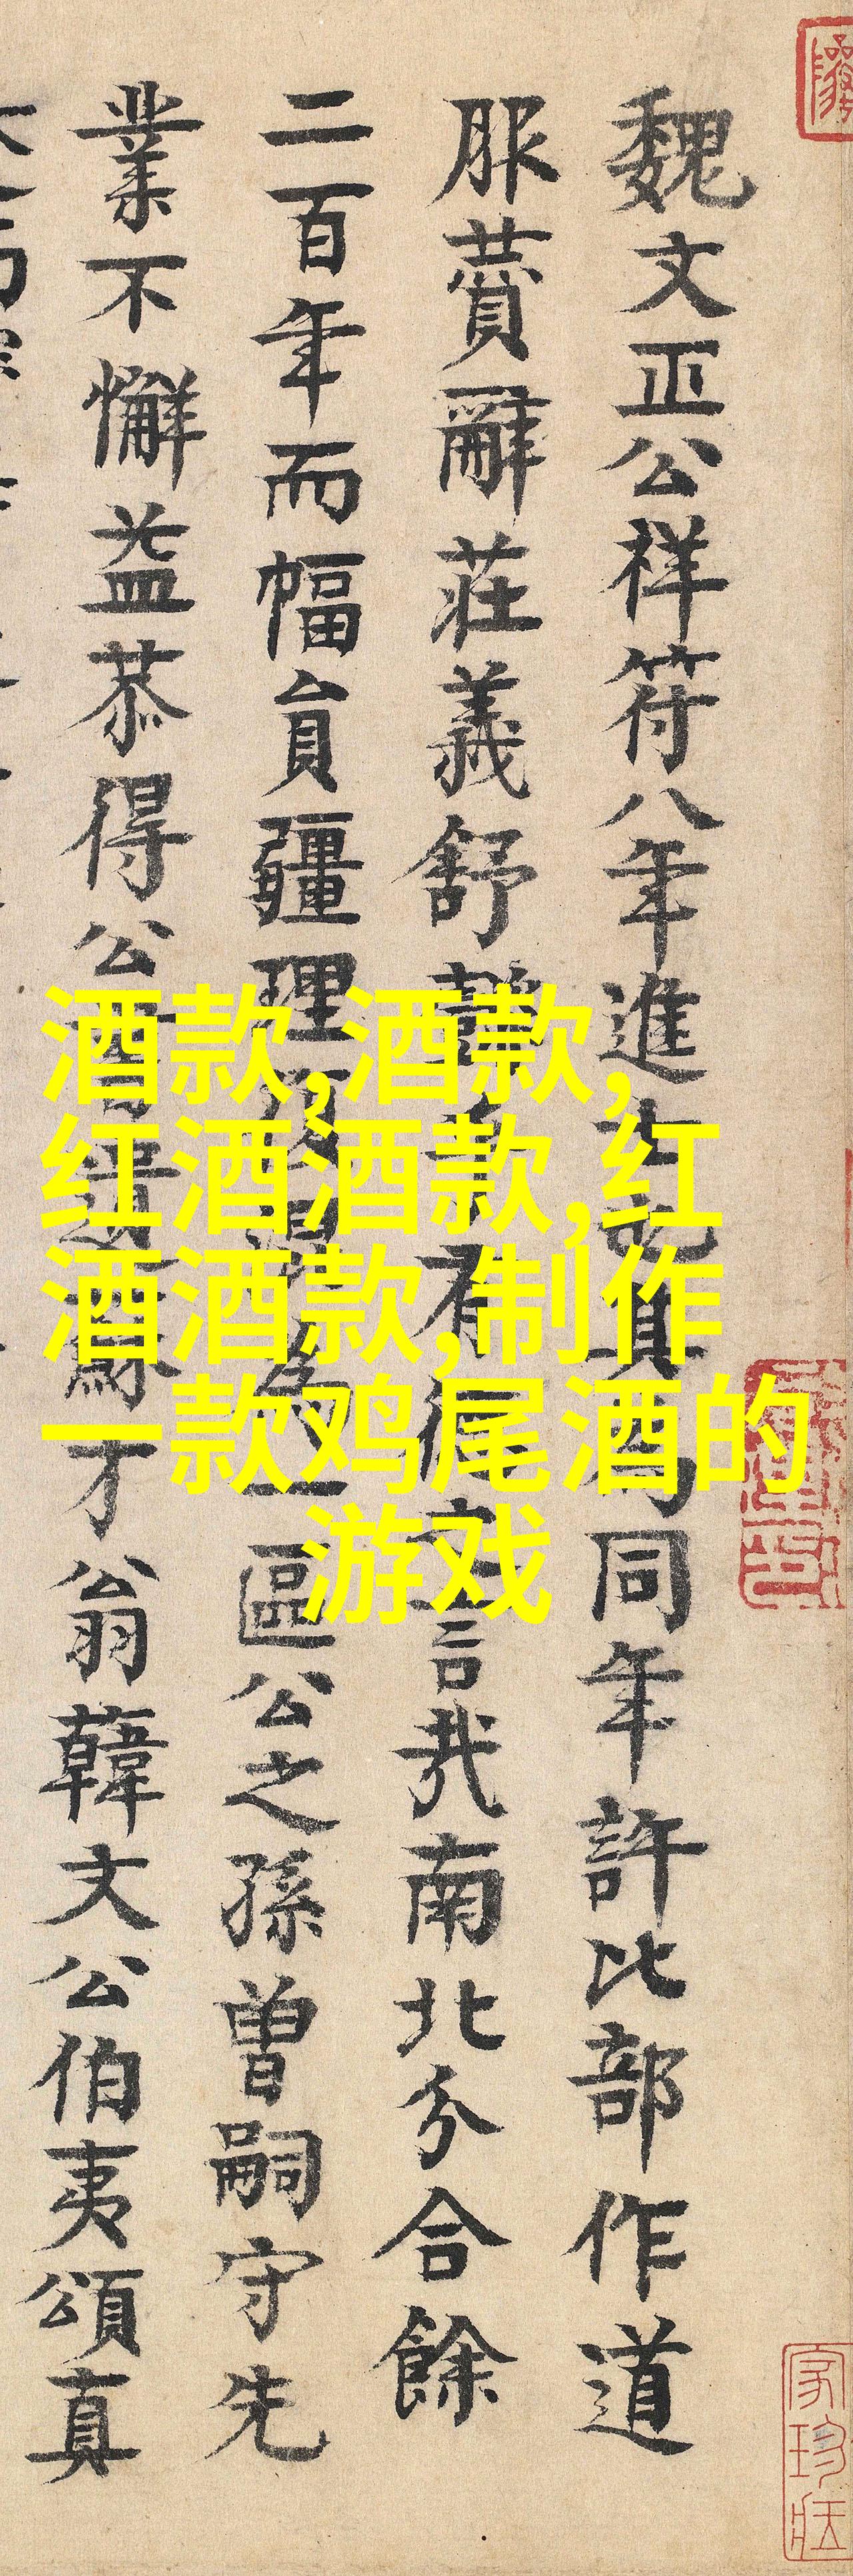 魏文正公祥符八年進士也真
同年許比部作道
服贊辭莊義舒
有德之言哉南北分合餘
二百年而幅員疆理復混為一區公之孫曾嗣守先
業不懈益恭得公
蘇才翁韓文公伯夷頌真
酒款,酒款,
红酒酒款,红
酒酒款,制作
一款鸡尾酒的
游戏